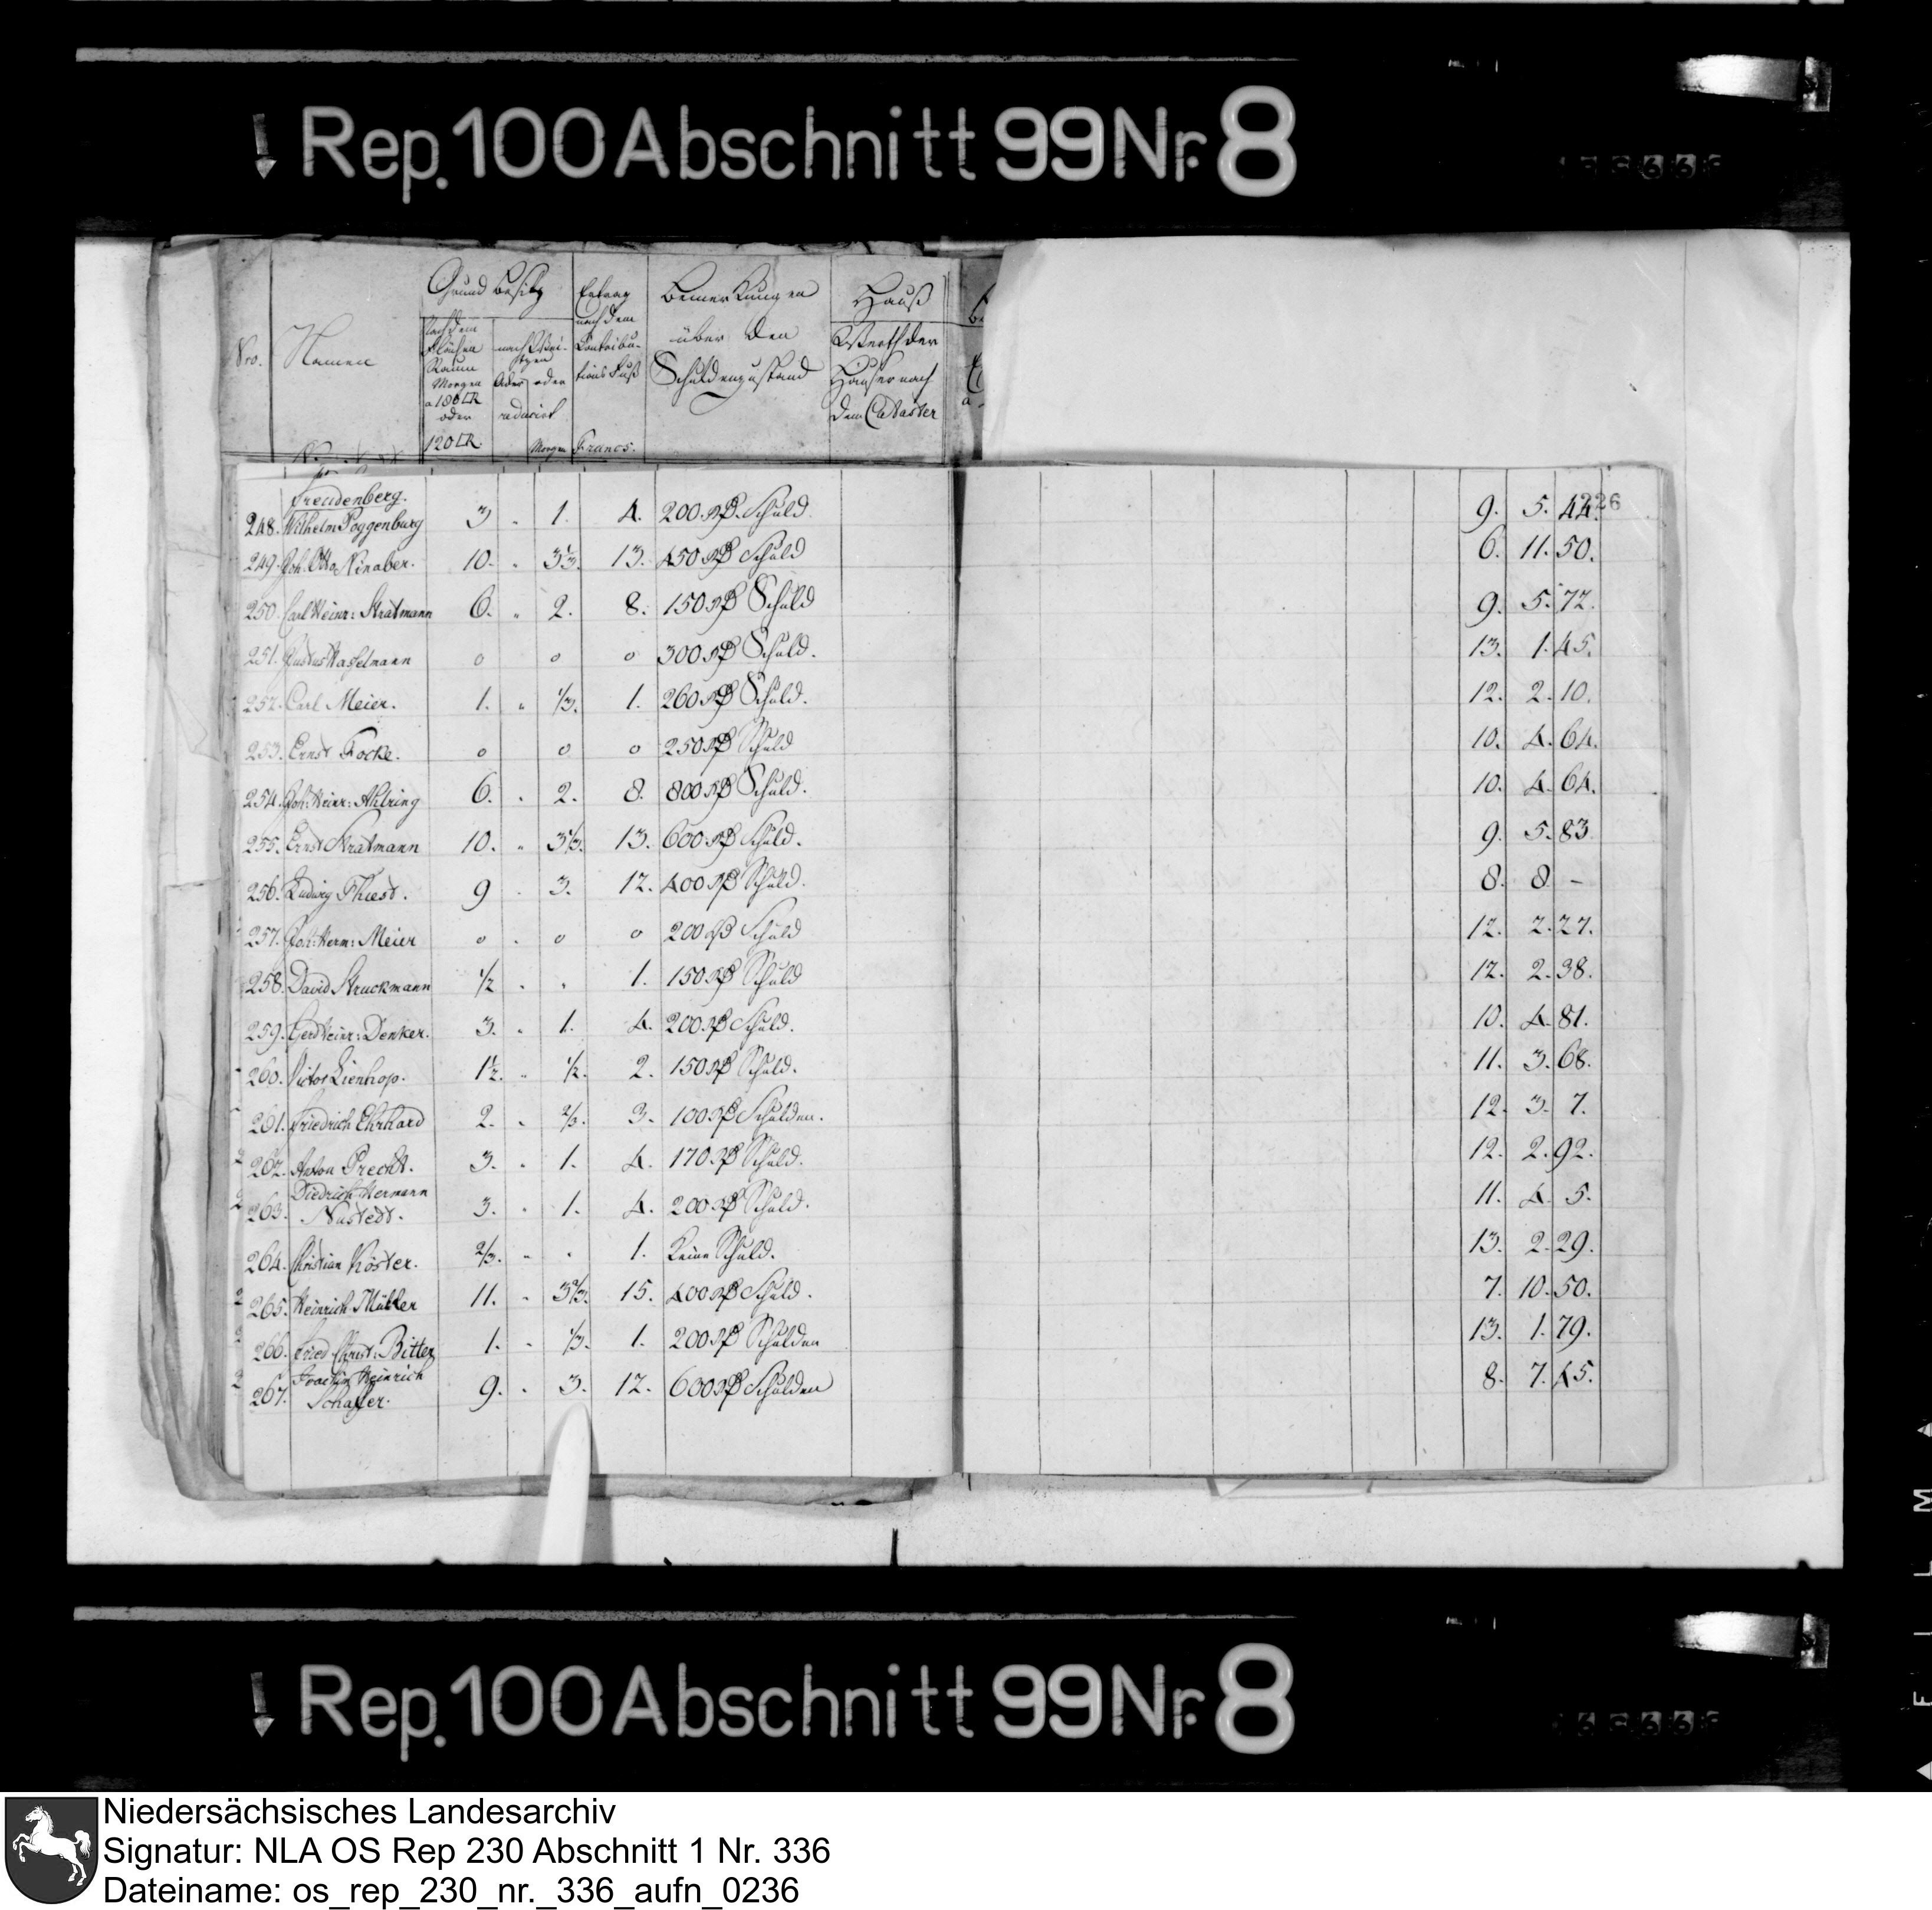 Rep. 100 Abschnitt 99 Nr. 8
Nro.
Namen
Grund besitz
nach dem
Flächen
Raum
Morgen
a 180 □R
oder
120 □R
Morgen
Ertrag
nach dem
Contribu-
tions Fuß
Francs.
Bemerkungen
über den
Schuldenzustand
Hauß
Werth der
Häuser nach
dem Cataster
226
Freudenberg.
248. Wilhelm Poggenburg 3 1. 4. 200 Rth. Schuld. 9. 5. 44.
249. Joh: Otto Ninaber. 10. 3 1/3. 13. 450 Rth Schuld 6. 11. 50.
250. Carl Heinr: Stratmann 6. 2. 8. 150 Rth Schuld 9. 5. 72.
251. Justus Hasselmann 0 0 0 300 Rth Schuld. 13. 1. 45.
252. Carl Meier. 1. 1/3. 1. 260 Rth Schuld. 12. 2. 10.
253. Ernst Focke. 0 0 0 250 Rth Schuld 10. 4. 64.
254. Joh: Heinr: Ahlring 6. 2. 8. 800 Rth Schuld. 10. 4. 64.
255. Ernst Stratmann 10. 3 1/3. 13. 600 Rth Schuld. 9. 5. 83
256. Ludwig Thiest. 9 3. 12. 400 Rth Schuld. 8. 8 –
257. Joh: Herm: Meier 0 0 0 200 Rth Schuld 12. 2. 27.
258. David Struckmann 1/2 1. 150 Rth Schuld 12. 2. 38.
259. Gerd Heinr: Denker. 3. 1. 4. 200 Rth Schuld. 10. 4. 81.
260. Victor Lienhop. 1 1/2. 1/2. 2. 150 Rth Schuld. 11. 3. 68.
261. Friedrich Ehrhard 2. 2/3. 3. 100 Rth Schulden. 12. 3. 7.
262. Anton Precht. 3. 1. 4. 170 Rth Schuld. 12. 2. 92.
Diedrich Hermann
263. Nustedt. 3. 1. 4. 200 Rth Schuld. 11. 4 5.
264. Christian Köster. 2/3. 1. Keine Schuld. 13. 2. 29.
265. Heinrich Müller 11. 3 2/3. 15. 400 Rth Schuld. 7. 10. 50.
266. Fried Christ: Bitter 1. 1/3. 1. 200 Rth Schulden 13. 1. 79.
Heinrich
267. Schaffer. 9. 3. 12. 600 Rth Schulden 8. 7. 45.
Rep. 100 Abschnitt 99 Nr. 8
Niedersächsisches Landesarchiv
Signatur: NLA OS Rep 230 Abschnitt 1 Nr. 336
Dateiname: os_rep_230_nr._336_aufn_0236